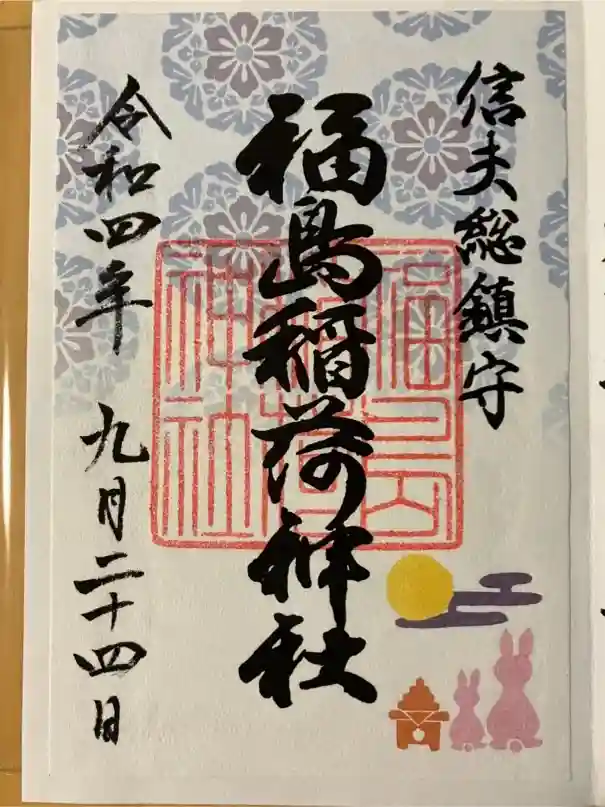 信夫総鎮守
福島稲荷神社
令和四年 九月二十四日
福島
稲荷
神社